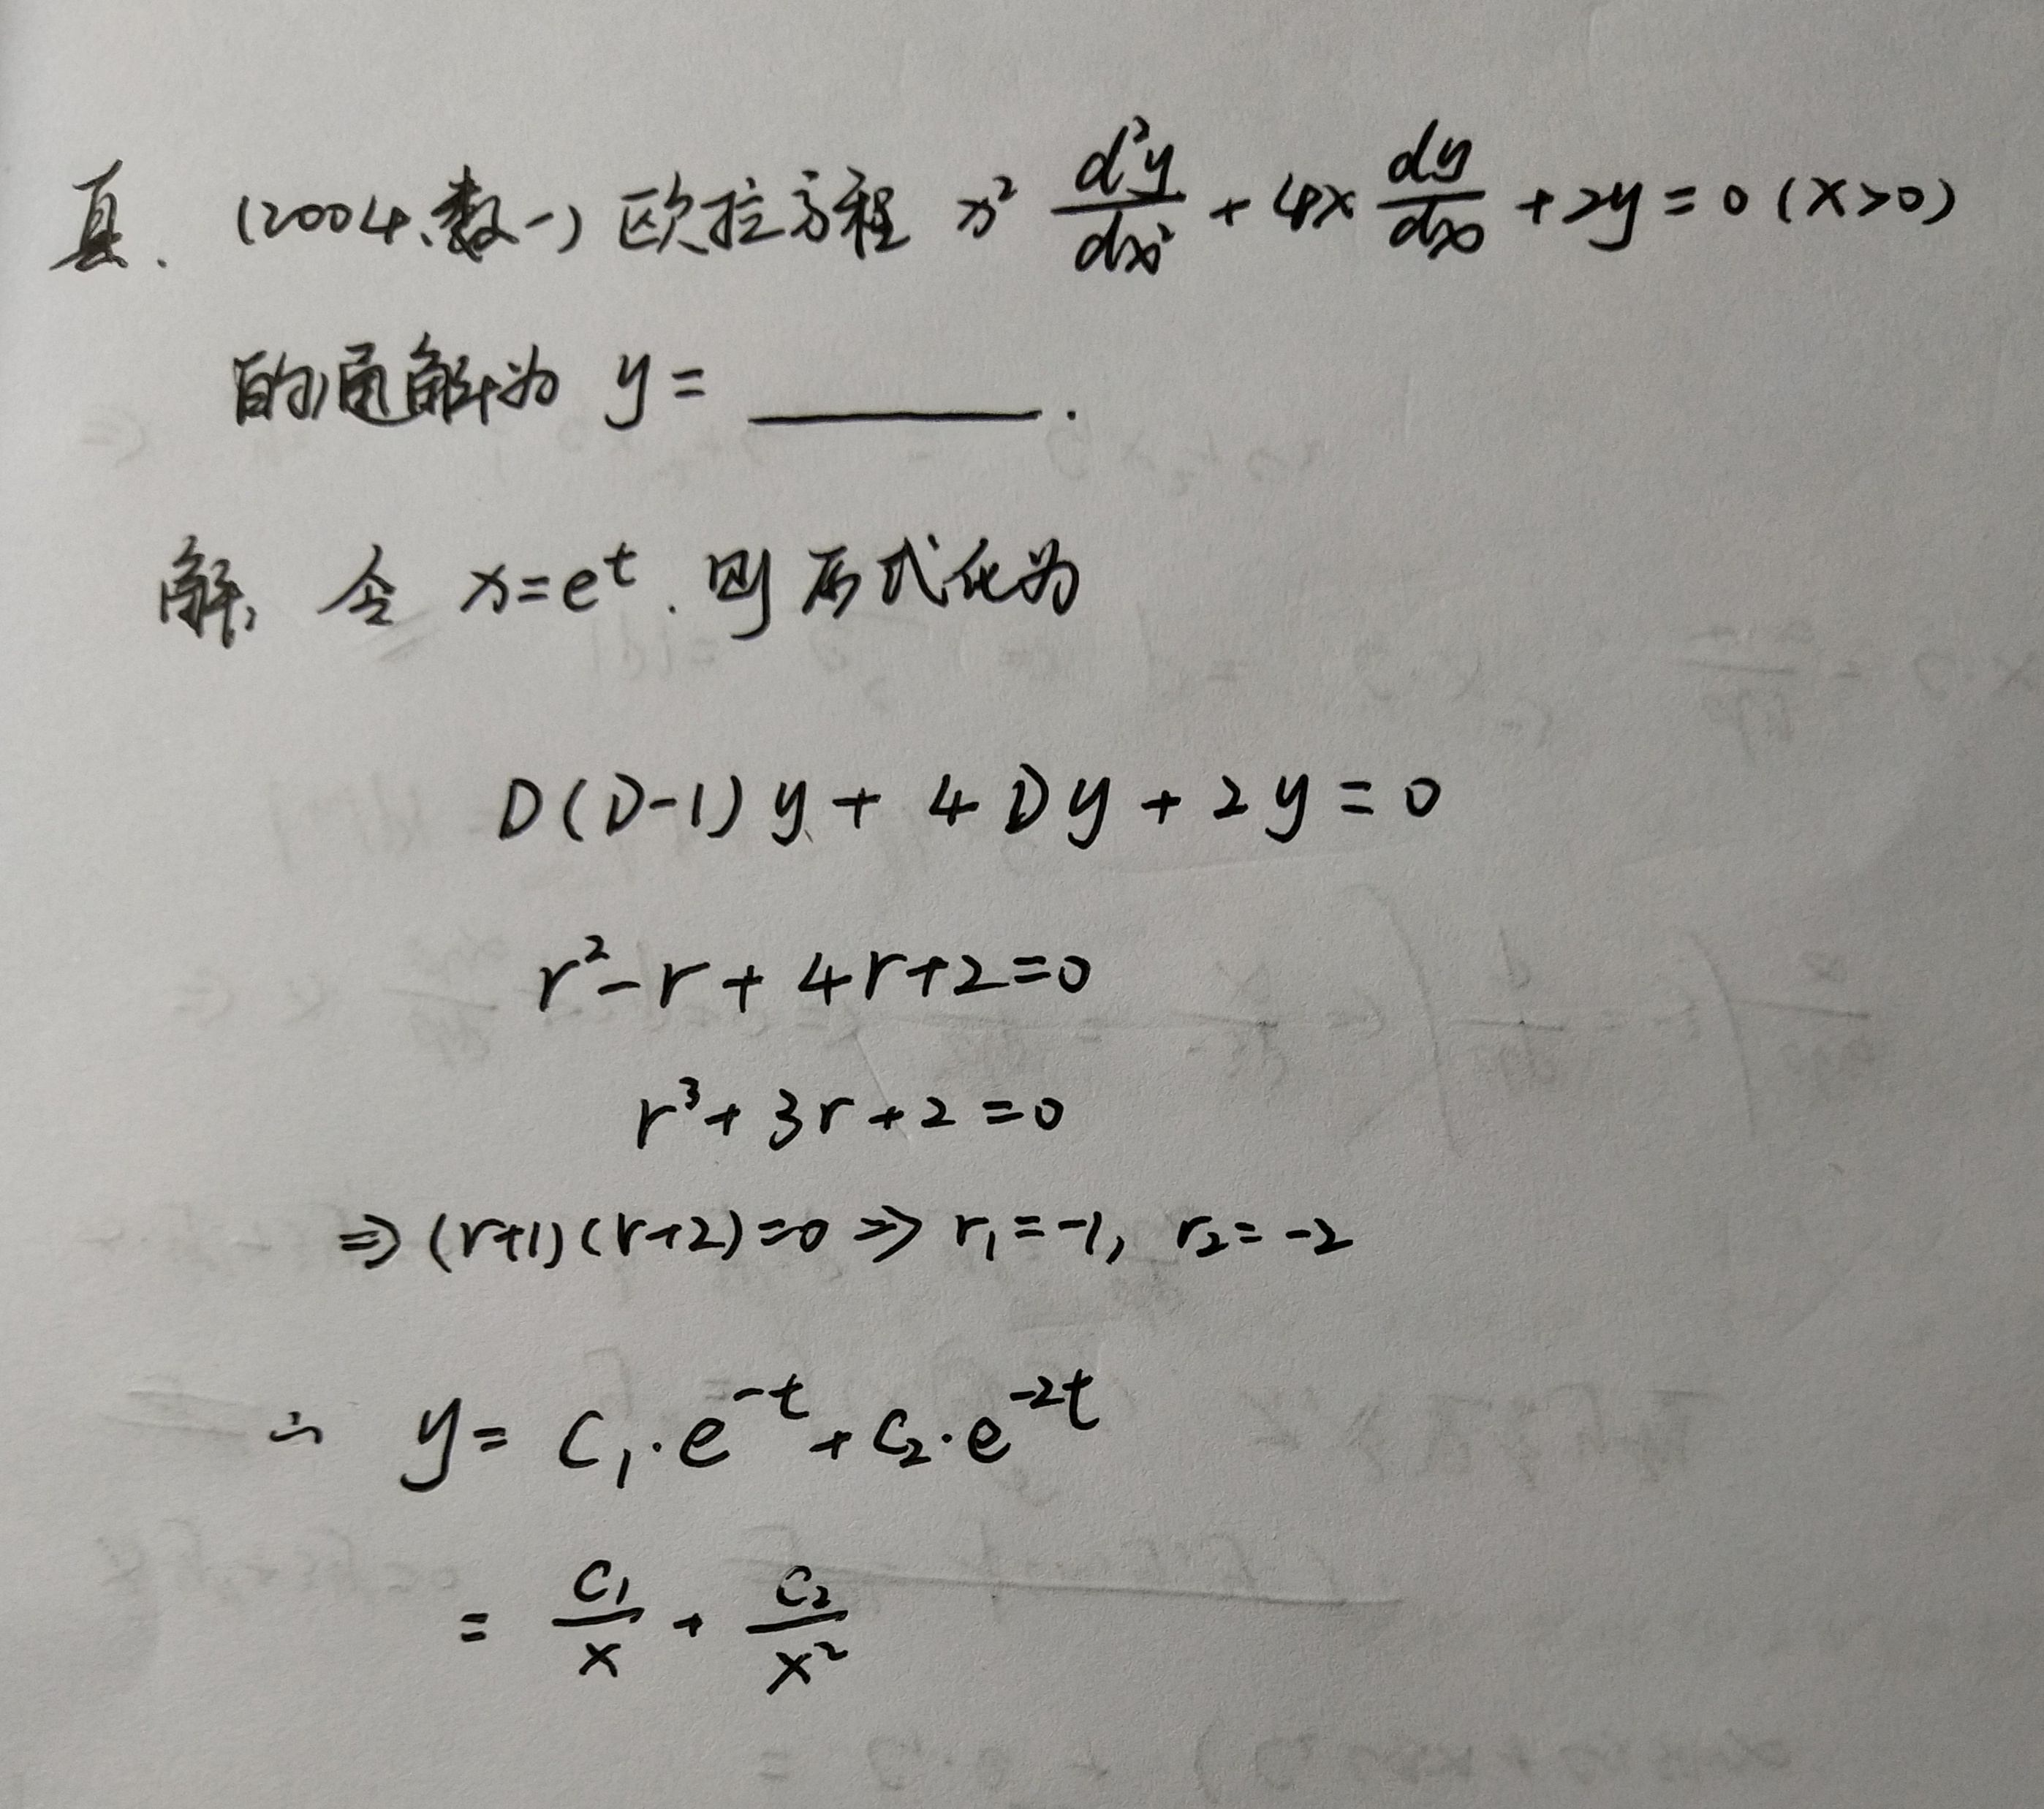 真. (2004、数一) 欧拉方程 x² d²y/dx² + 4x dy/dx + 2y = 0 (x>0)
的通解为 y = ______ .
解, 令 x=eᵗ. 则原式化为
D(D-1)y + 4Dy + 2y = 0
r²-r+4r+2=0
r³+3r+2=0
⇒ (r+1)(r+2)=0 ⇒ r₁=-1, r₂=-2
∴ y = C₁·e⁻ᵗ + C₂·e⁻²ᵗ
= C₁/x + C₂/x²